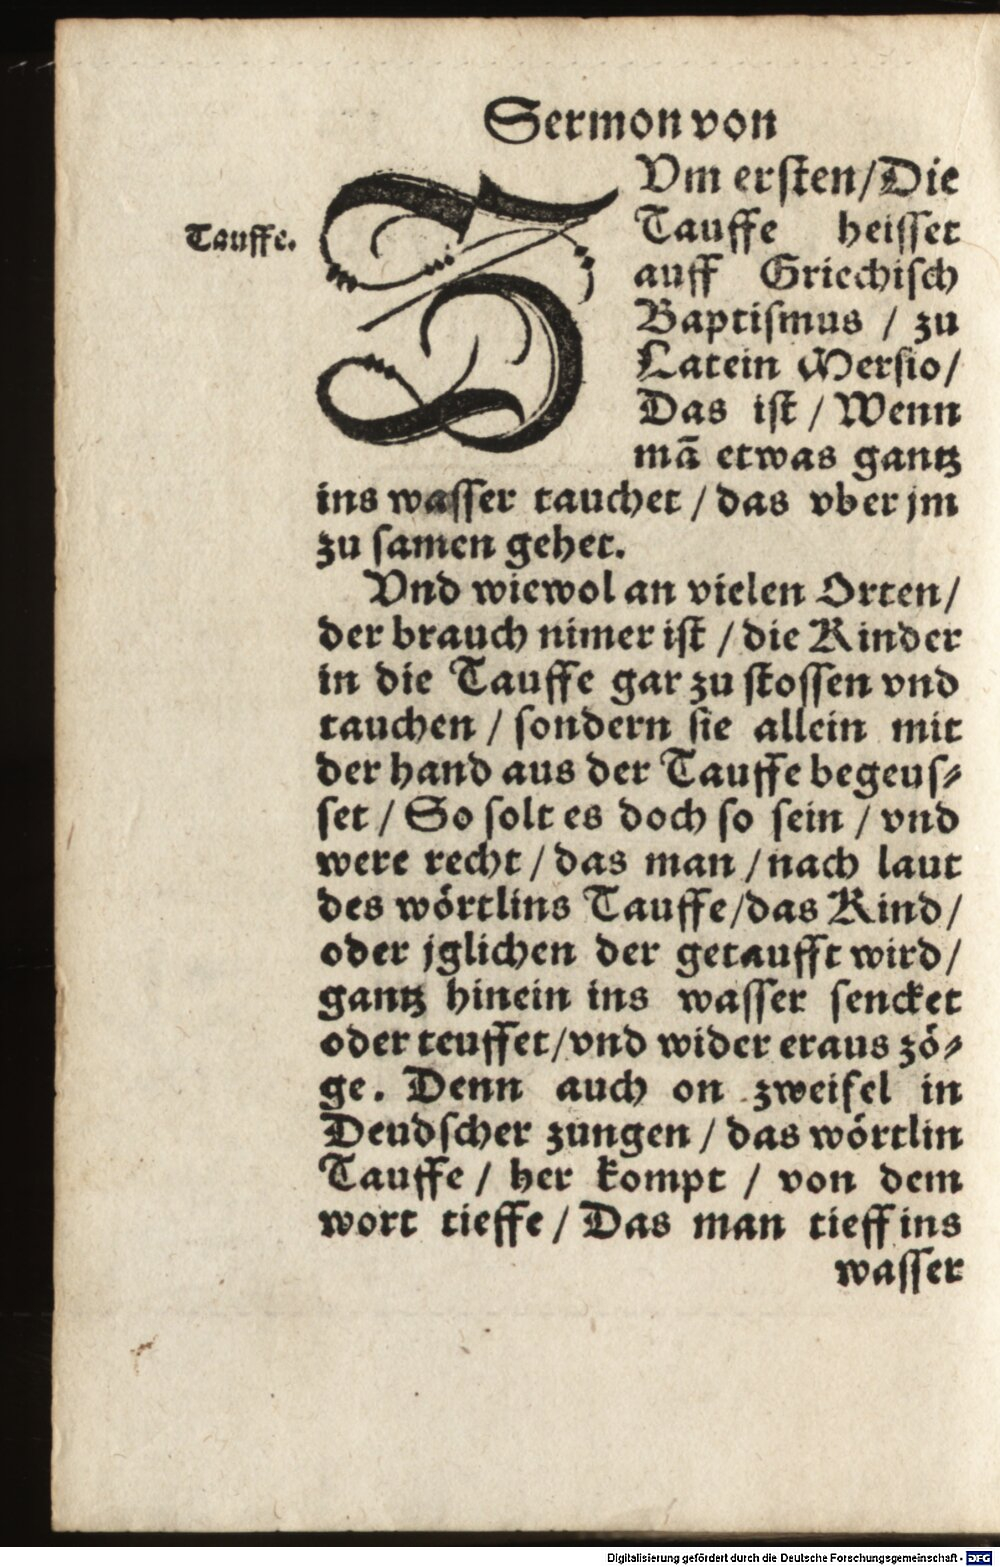 Sermon von
Tauffe.
ZVm ersten/Die
Tauffe heisset
auff Griechisch
Baptismus / zu
Latein Mersio/
Das ist / Wenn
mā etwas gantz
ins wasser tauchet / das vber jm
zu samen gehet.
Vnd wiewol an vielen Orten/
der brauch nimer ist / die Kinder
in die Tauffe gar zu stossen vnd
tauchen / sondern sie allein mit
der hand aus der Tauffe begeus⸗
set / So solt es doch so sein / vnd
were recht / das man / nach laut
des wörtlins Tauffe/das Kind/
oder jglichen der getaufft wird/
gantz hinein ins wasser sencket
oder teuffet/vnd wider eraus zö⸗
ge. Denn auch on zweifel in
Deudscher zungen / das wörtlin
Tauffe / her kompt / von dem
wort tieffe / Das man tieff ins
wasser
Digitalisierung gefördert durch die Deutsche Forschungsgemeinschaft - DFG